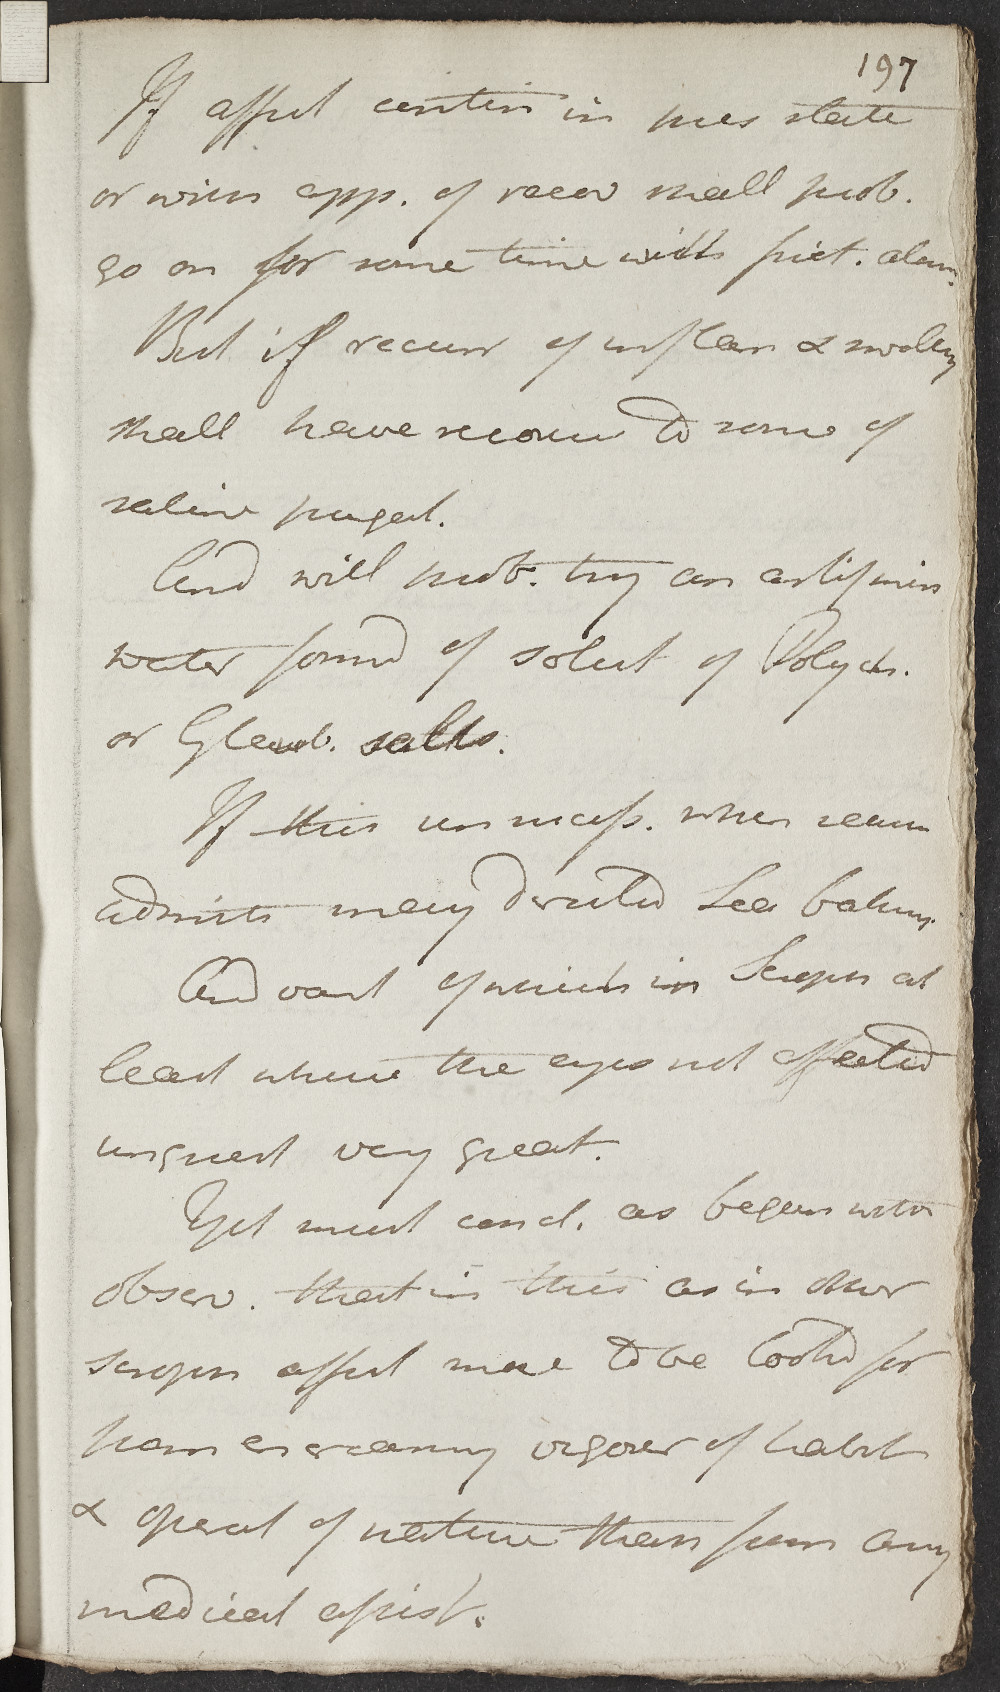 197
If affect contin in pres state
or with app. of recov shall prob.
go on for some time with frict. alon.
But if recurr of inflam & swelling
shall have recourse to some of
saline purgat.
And will prob. try an artif min
water formd of solut of Polych.
or Glaub. salts.
If this unnecess. when season
admits may be directed Sea bathing.
And want of which in Scroph at
least where the eyes not affected
unquest very great.
Yet must concl. as began with
observ. that in this as in other
scroph affect more to be lookd for
from encreasing vigour of habit
& operat of nature than from any
medical assist.